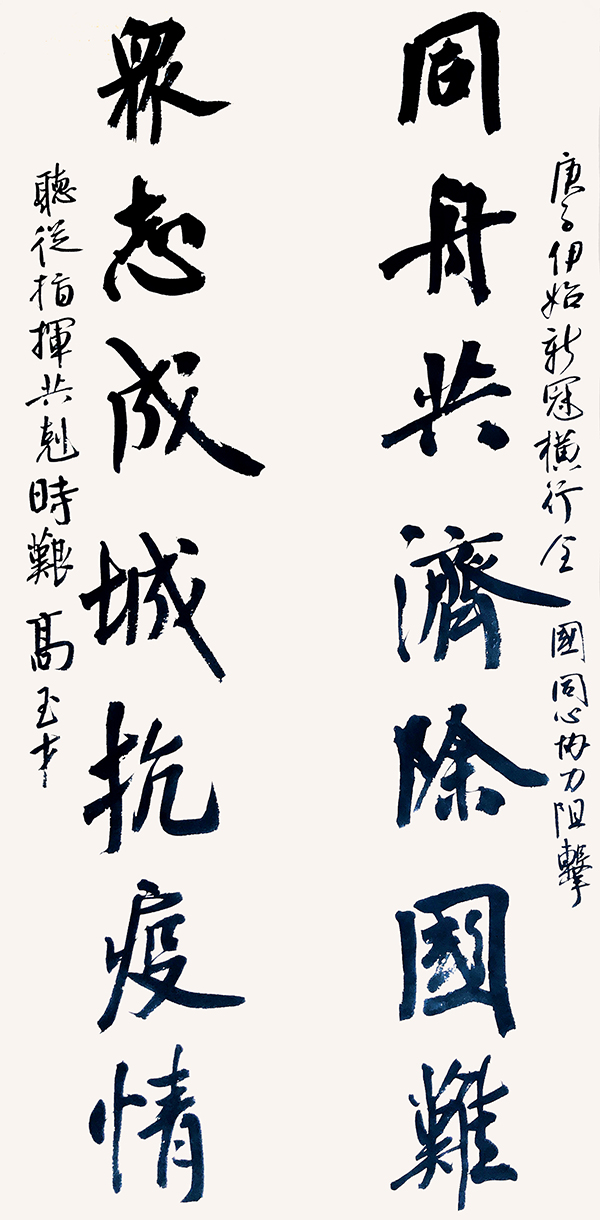 庚子伊始新冠橫行全國同心協力阻擊
同舟共濟除國難
眾志成城抗疫情
聽從指揮共剋時艱 高玉才